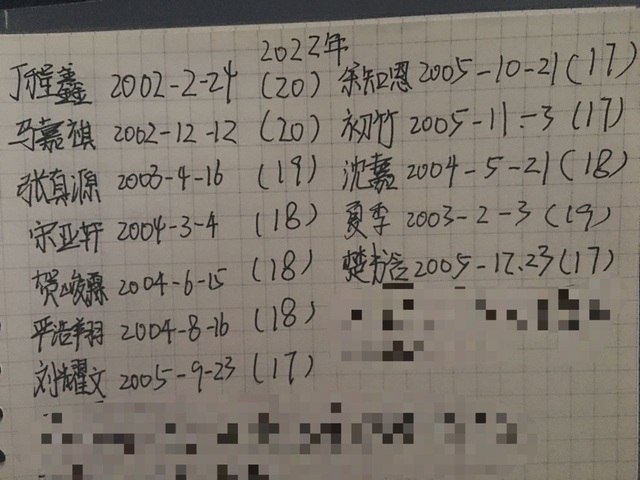 2022年
丁程鑫 2002-2-24 (20)
马嘉祺 2002-12-12 (20)
张真源 2003-4-16 (19)
宋亚轩 2004-3-4 (18)
贺峻霖 2004-6-15 (18)
严浩翔 2004-8-16 (18)
刘耀文 2005-9-23 (17)
余知恩 2005-10-21(17)
初竹 2005-11-3 (17)
沈嘉 2004-5-21(18)
夏季 2003-2-3(19)
楚 2005-12.23(17)